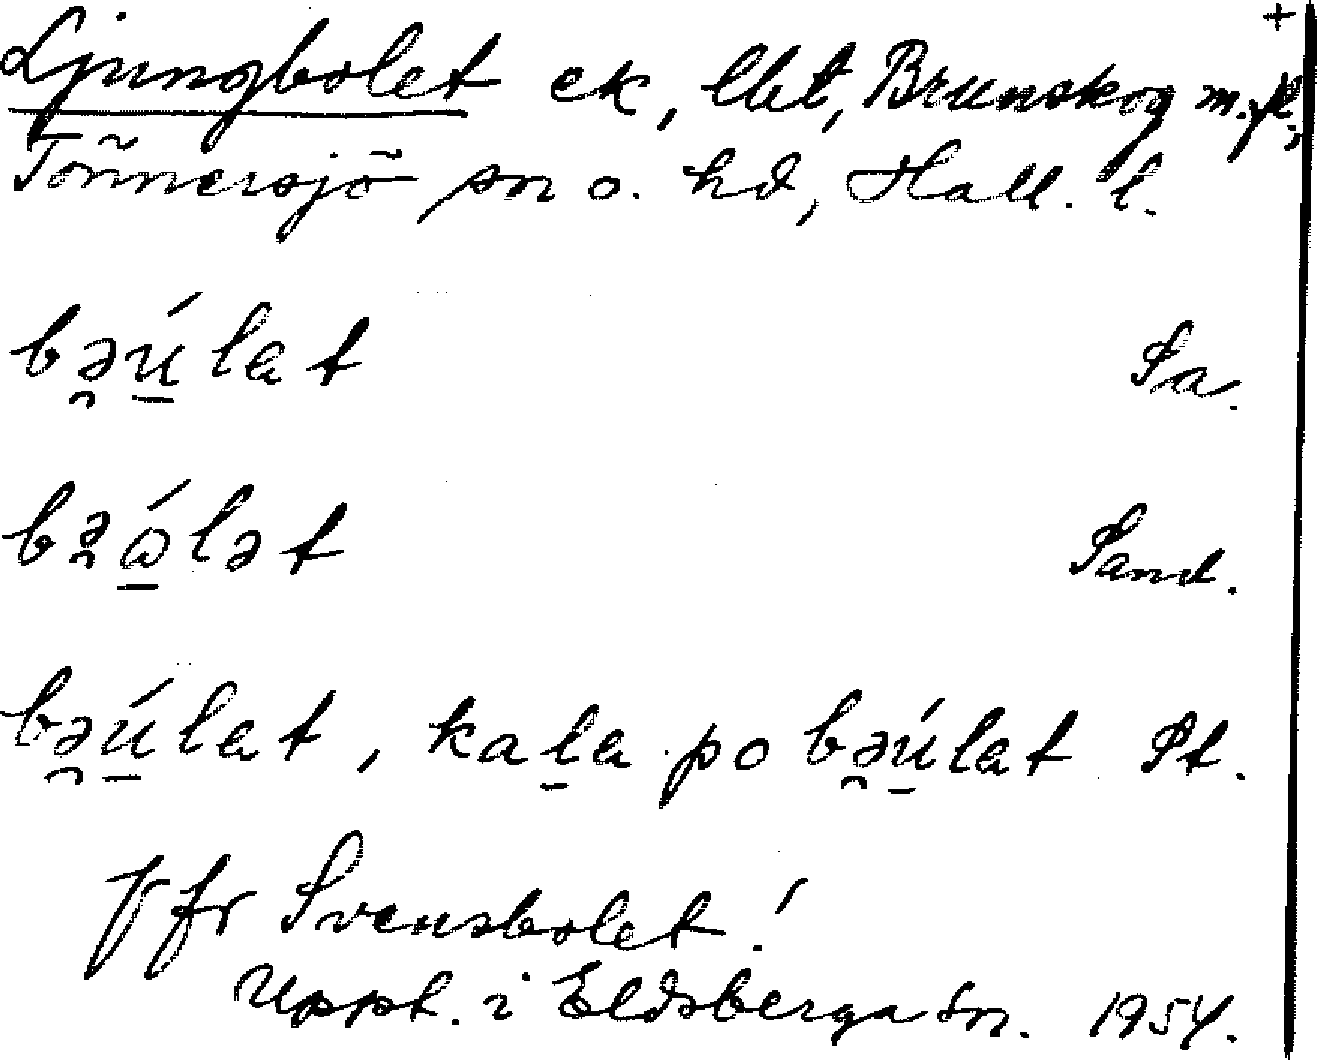 +
Ljungbolet ek, lht, Brunskog m.fl.,
Tönnersjö sn o. hd, Hall. l.
bə̯ú̱lat Sa.
bə̯ɷ̱́lət Sand.
bə̯ú̱lat, kaḻa po bə̯ú̱lat St.
Jfr Svensbolet!
Uppt. i Eldsberga sn. 1954.